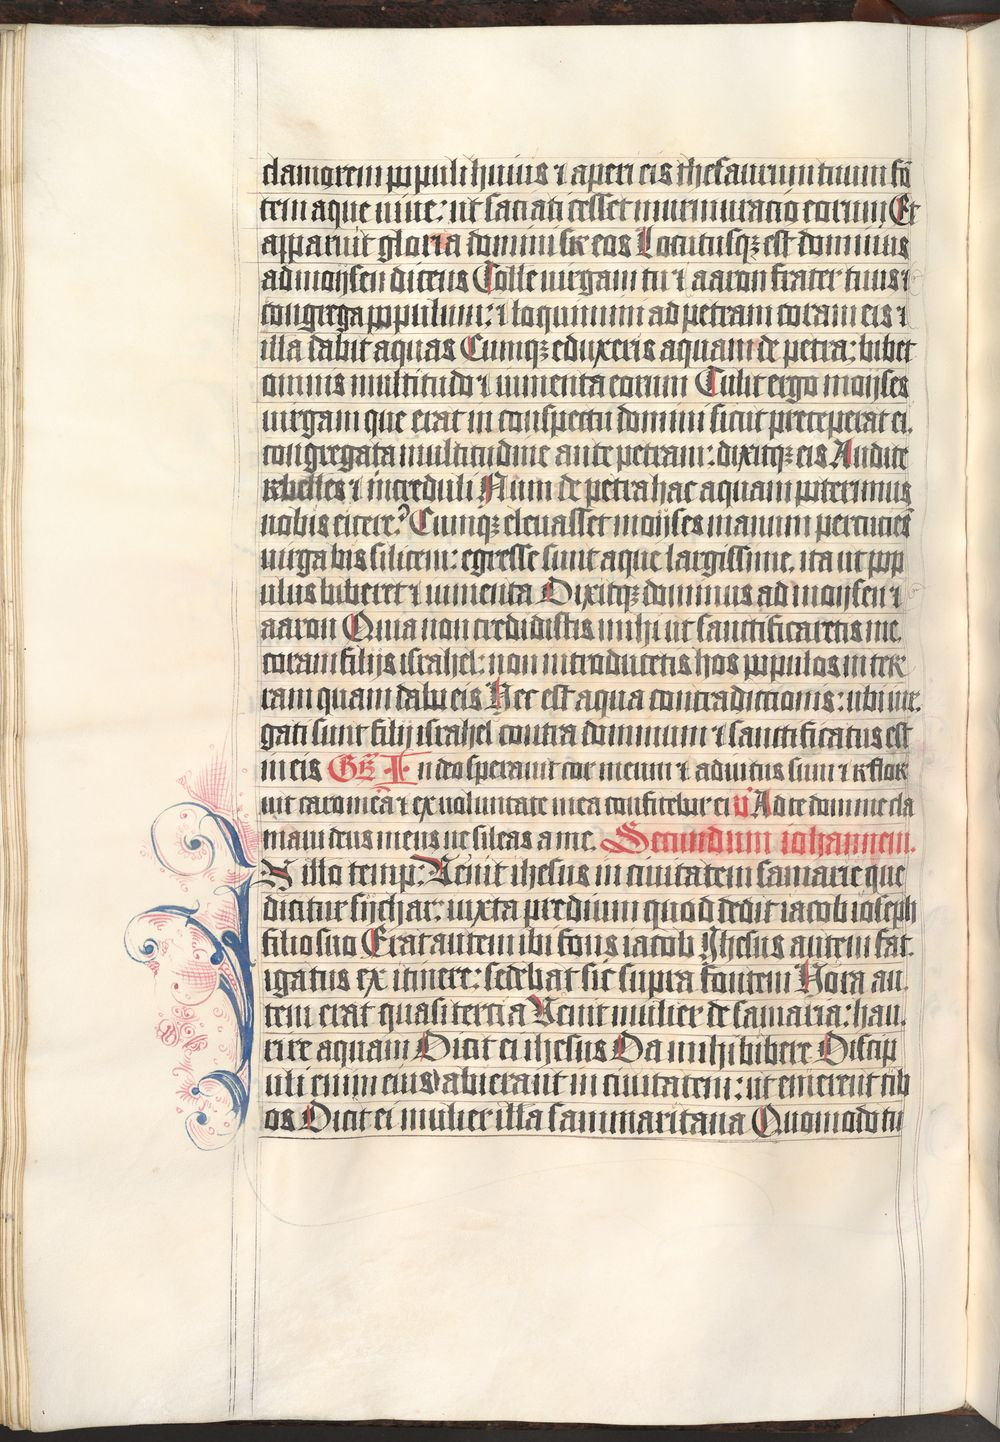 clamorem ppuli huius ⁊ aperi eis thesaurum tuum fō
tem aque uiue: ut saciati cesset murmuracio eorum Et
apparuit gloria domini sr eos Locutusqꝫ est dominus
ad moysen dicens Tolle uirgam tu ⁊ aaron frater tuus ⁊
congrega ppulum: ⁊ loquimini ad petram coram eis ⁊
illa dabit aquas Cumqꝫ eduxeris aquam de petra: bibet
omnis multitudo ⁊ iumenta eorum Tulit ergo moyses
uirgam que erat in conspectu domini sicut preceperat ei.
congregata multitudine ante petram: dixitqꝫ eis Audite
rebelles ⁊ increduli Num de petra hac aquam poterimus
uobis eicere? Cumqꝫ eleuasset moyses manum percuciēs
uirga bis silicem: egresse sunt aque largissime. ita ut pop
ulus biberet ⁊ iumenta Dixitqꝫ dominus ad moysen ⁊
aaron Quia non credidistis mihi ut sanctificaretis me.
coram filijs israhel: non introducetis hos ppulos in ter
ram quam dabo eis Hec est aqua contradictionis: ubi iur.
gati sunt filij israhel contra dominum ⁊ sanctificatus est
in eis Gr̄ In deo sperauit cor meum ⁊ adiutus sum ⁊ reflor
uit caro mea ⁊ ex uoluntate mea confitebor ei v̄ Ad te domine cla
maui deus meus ne sileas a me. Secundum iohannem.
N illo temp: Venit ihesus in ciuitatem samarie que
dicitur sychar: iuxta predium quod dedit iacob ioseph
filio suo Erat autem ibi fons iacob Ihesus autem fat.
igatus ex itinere: sedebat sic supra fontem Hora au.
tem erat quasi tercia Venit mulier de samaria: hau.
rire aquam Dicit ei ihesus Da mihi bibere Discip
uli enim eius abierant in ciuitatem: ut emerent cib
os Dicit ei mulier illa sammaritana Quomodo tu